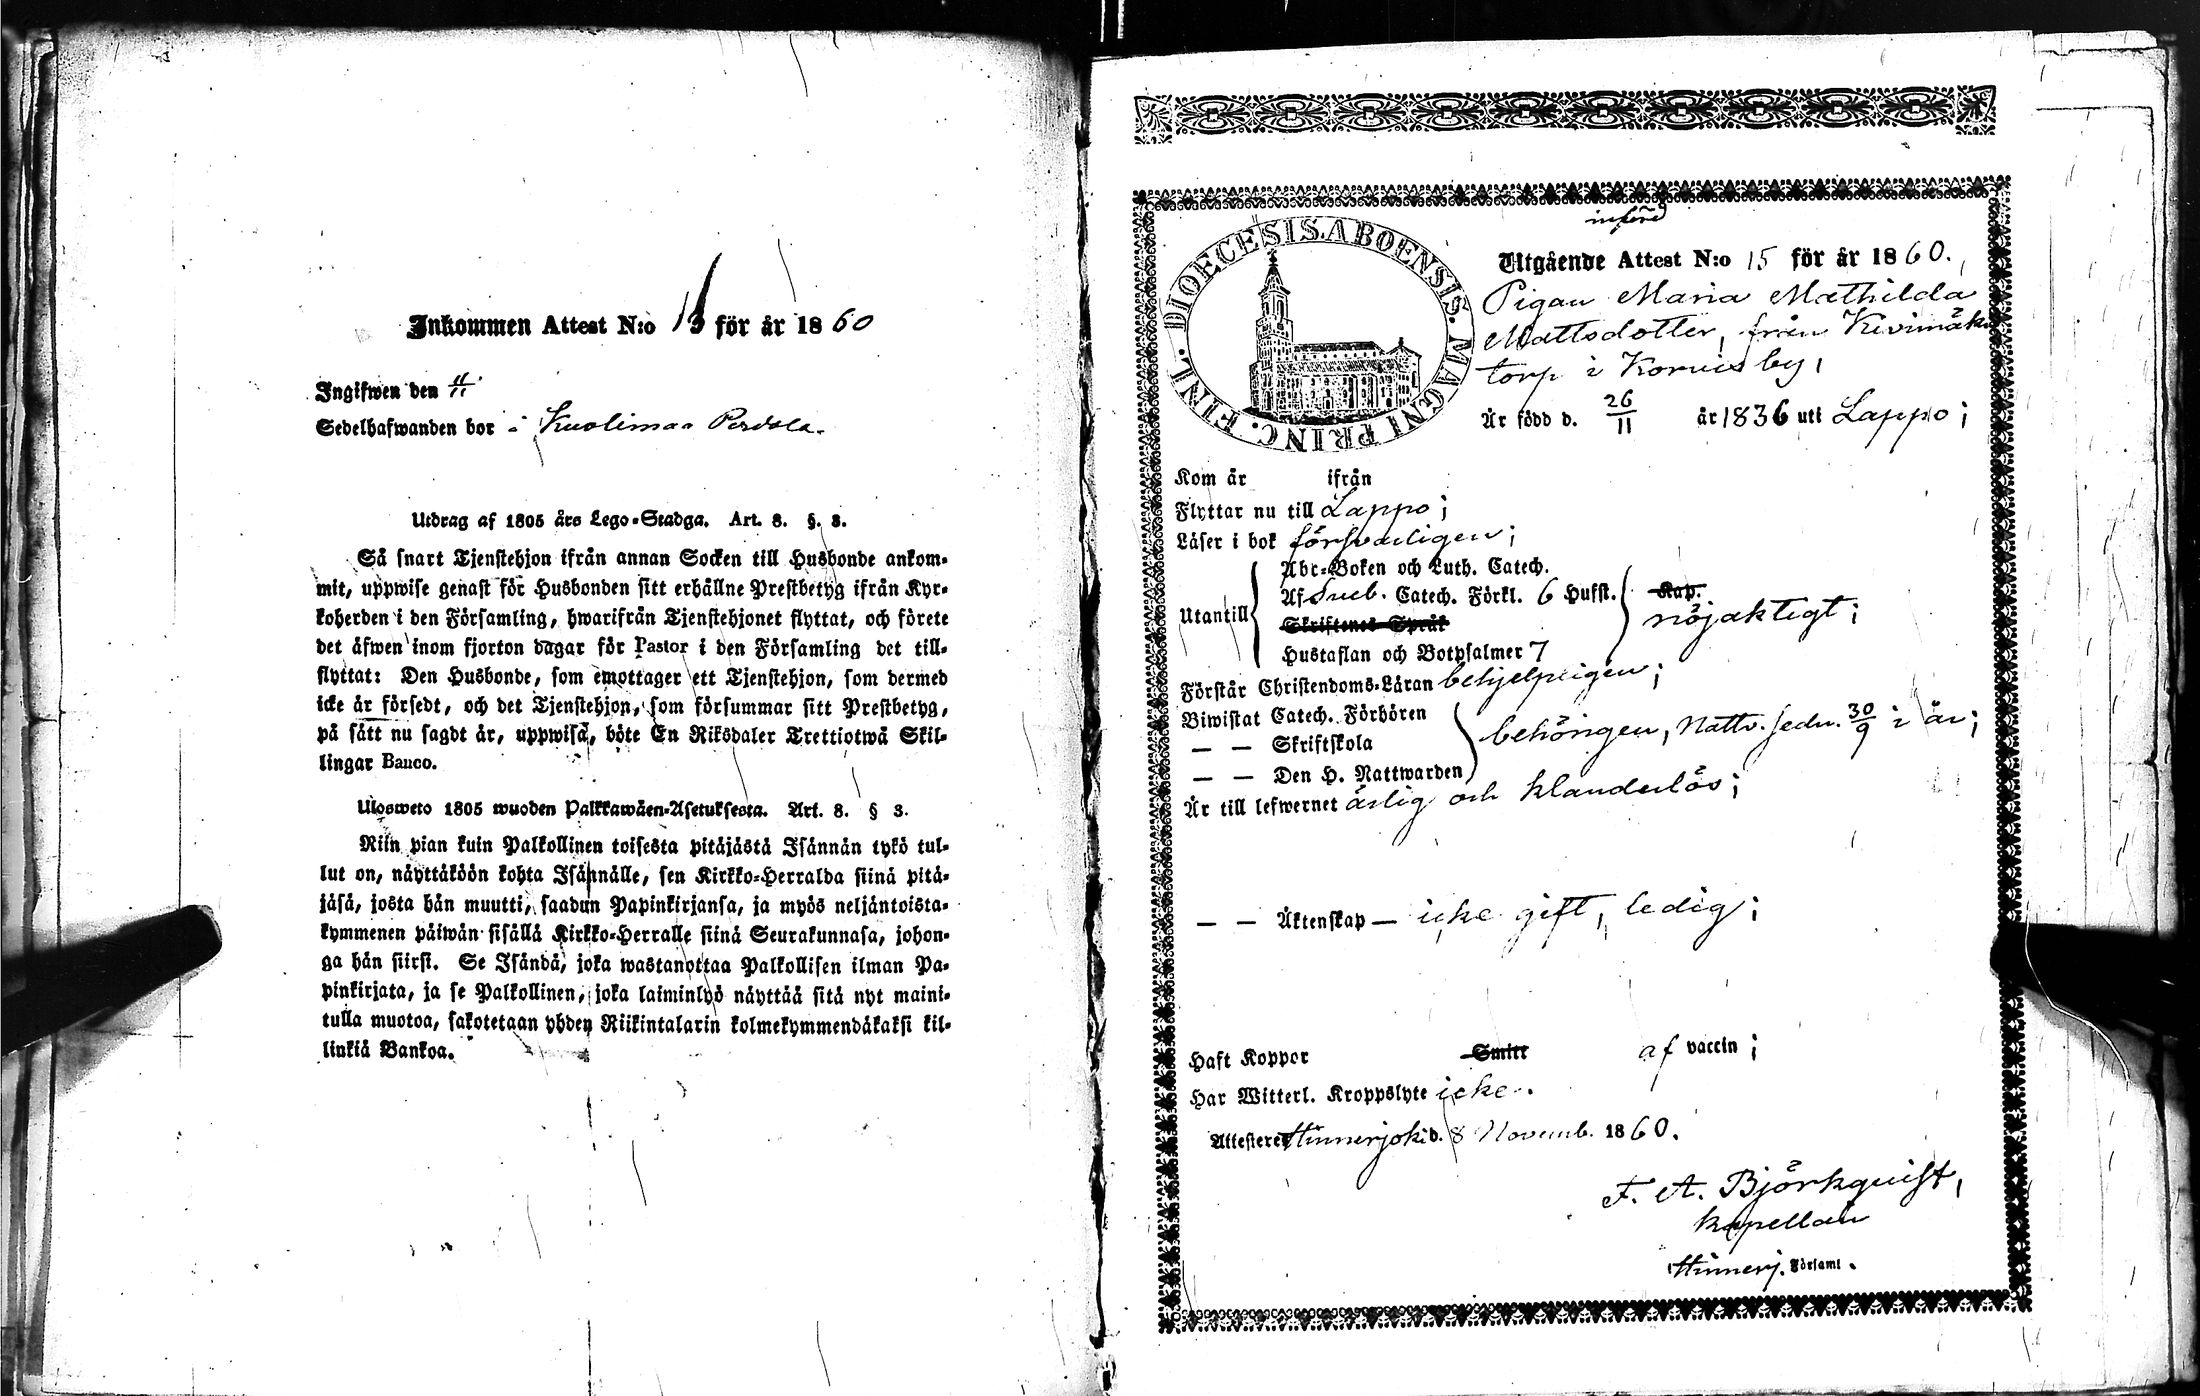 Inkommen Attest N:o för år 1860
Ingifwen den
Sedelhafwanden bor i Kuolimaa Perdola.
Utdrag af 1805 års Lego-Stadga. Art. 8. §. 3.
Så snart Tjenstehjon ifrån annan Socken till Husbonde ankom-
mit, uppwise genast för Husbonden sitt erhållne Prestbetyg ifrån Kyr-
koherden i den Församling, hwarifrån Tjenstehjonet flyttat, och förete
det äfwen inom fjorton dagar för Pastor i den Församling det till-
flyttat: Den Husbonde, som emottager ett Tjenstehjon, som dermed
icke är försedt, och det Tjenstehjon, som försummar sitt Prestbetyg,
på sätt nu sagdt är, uppwisa, böte En Riksdaler Trettiotwå Skil-
lingar Banco.
Ulosweto 1805 wuoden Palkkawäen-Asetuksesta. Art. 8. § 3.
Niin pian kuin Palkollinen toisesta pitäjästä Isännän tykö tul-
lut on, näyttäköön kohta Isännälle, sen Kirkko-Herralda siinä pitä-
jäsä, josta hän muutti, saadun Papinkirjansa, ja myös neljäntoista-
kymmenen päiwän sisällä Kirkko-Herralle siinä Seurakunnasa, johon-
ga hän siirsi. Se Isändä, joka wastanottaa Palkollisen ilman Pa-
pinkirjata, ja se Palkollinen, joka laiminlyö näyttää sitä nyt maini-
tulla muotoa, sakotetaan yhden Riikintalarin kolmekymmendäkaksi kil-
linkiä Bankoa.
införd
DIOECESIS. ABOENSIS. MAGNI PRINC. FINL.
Utgående Attest N:o 15 för år 1860.
Pigan Maria Mathilda
Mattsdotter, från Kivimäki
torp i Korvis by,
Är född d. 26/11 år 1836 uti Lappo;
Kom år ifrån
Flyttar nu till Lappo;
Läser i bok försvarligen;
Abc-Boken och Luth. Catech.
Utantill Af Sveb. Catech. Förkl. 6 Hufst. Kap. nöjaktigt;
Skriftenes Språk
Hustaflan och Botpsalmer 7
Förstår Christendoms-Läran behjelpligen;
Biwistat Catech. Förhören
— — Skriftskola behörigen, Nattv. sedn. 30/9 i år;
— — Den H. Nattwarden
Är till lefwernet ärlig och klanderlös;
— — Äktenskap — icke gift, ledig;
Haft Koppor Smitt af vaccin;
Har Witterl. Kroppslyte icke.
Attesterer Hinnerjoki d. 8 Novemb. 1860.
F. A. Björkqvist,
kapellan
Hinnerj. Församl.